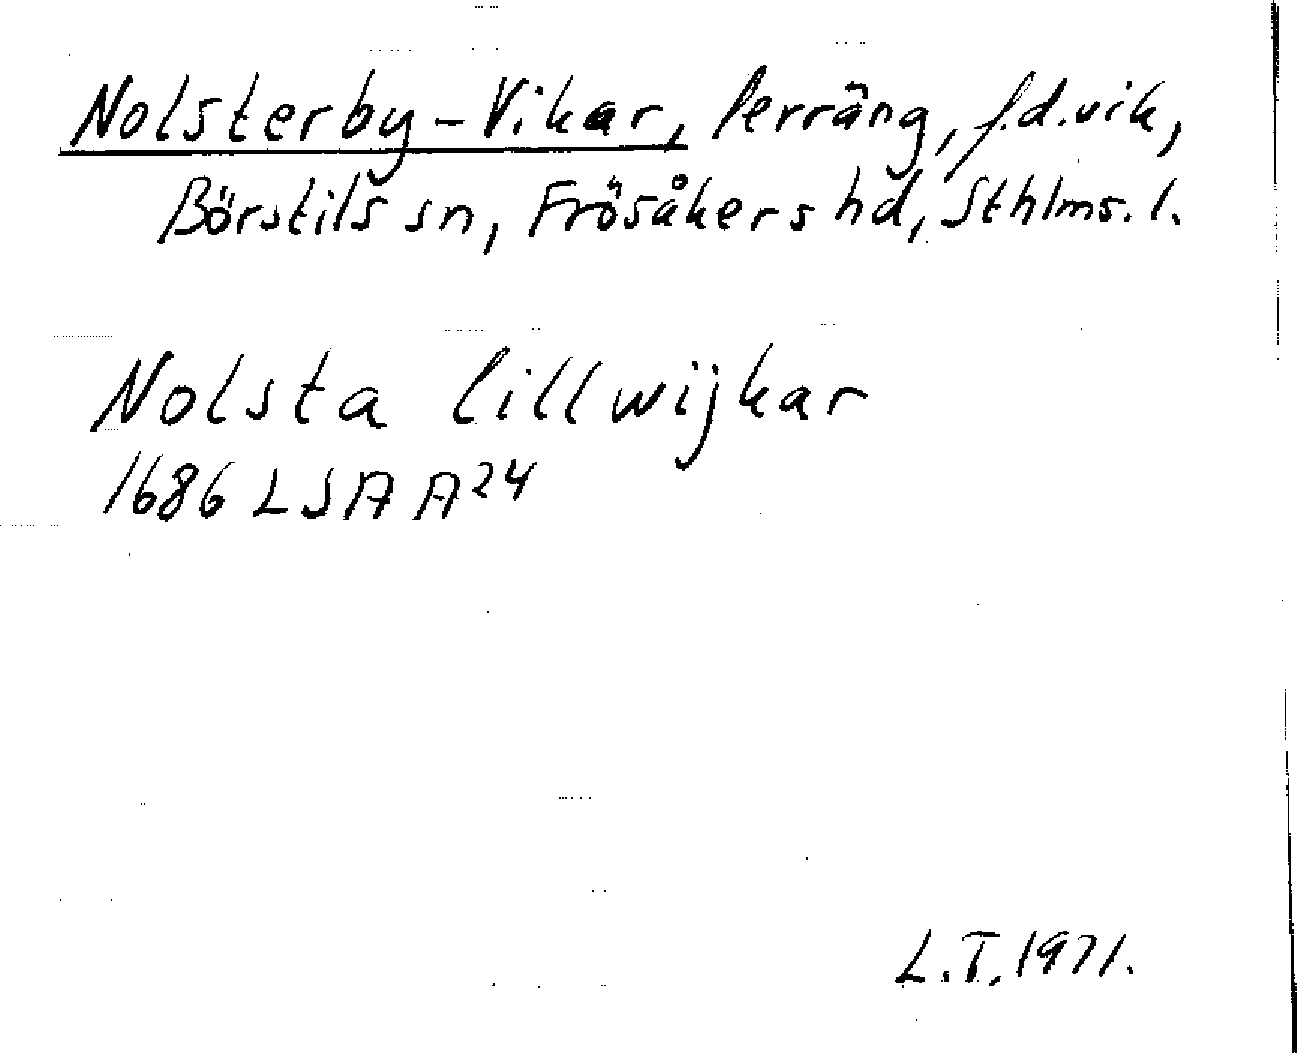 Nolsterby-Vikar, terräng, f.d. vik,
Börstils sn, Frösåkers hd, Sthlms. l.
Nolsta lillwijkar
1686 LSA A24
L.T. 1971.